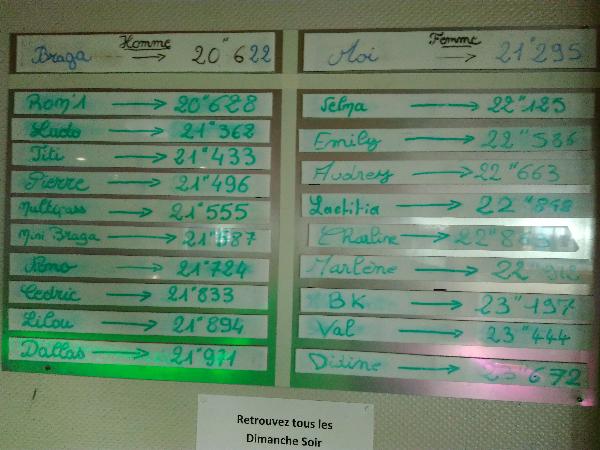 Homme
Braga → 20"622
Rom'1 → 20"628
Ludo → 21"362
Titi → 21"433
Pierre → 21"496
Multipass → 21"555
Mini Braga → 21"687
→ 21"724
Cedric → 21"833
Lilou → 21"894
Dallas → 21"971
Femme
→ 21"295
Selma → 22"125
Emily → 22"586
Audrey → 22"663
Laetitia → 22"848
Charline →
Marlène →
BK → 23"197
Val → 23"444
Didine → 23"672
Retrouvez tous les
Dimanche Soir